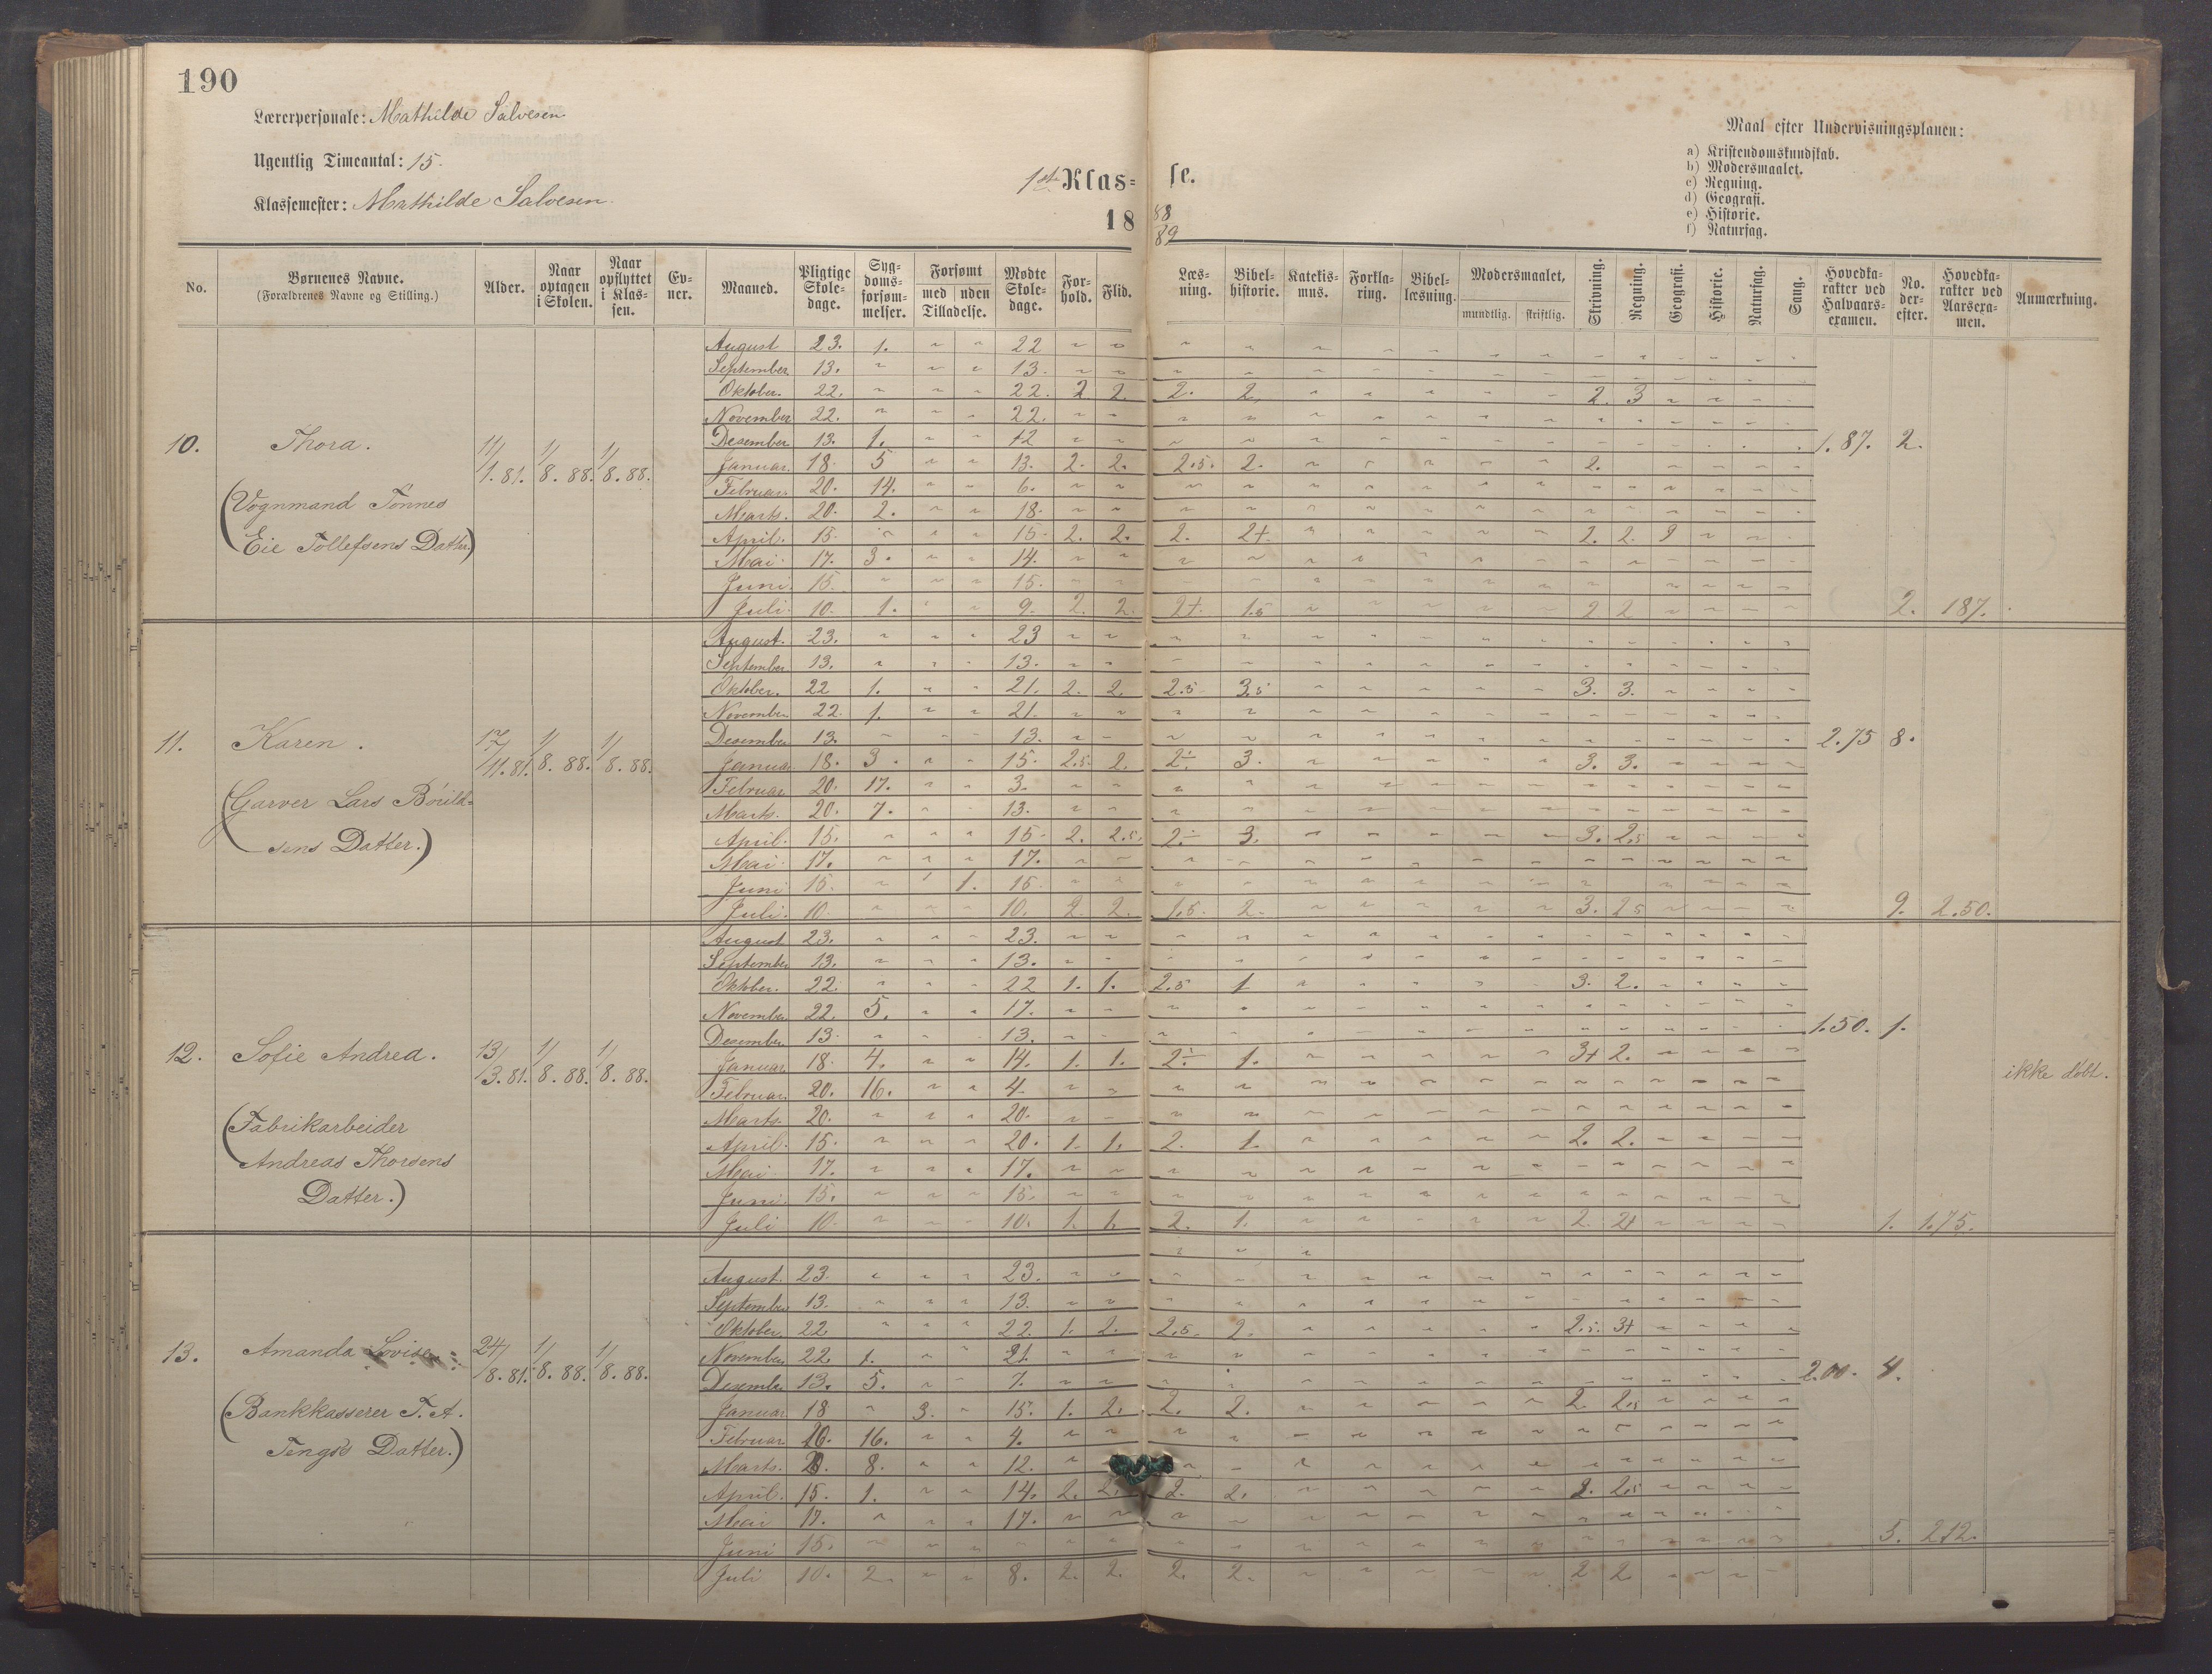 190
Lærerpersonale: Mathilde Salvesen
Ugentlig Timeantal: 15.
Klassemester: Mathilde Salvesen.
1ste Klas= se.
18 88
89
Maal efter Undervisningsplanen:
a) Kristendomskundskab.
b) Modersmaalet.
c) Regning.
d) Geografi.
e) Historie.
f) Naturfag.
No. Børnenes Navne. (Forældrenes Navne og Stilling.) Alder. Naar optagen i Skolen. Naar opflyttet i Klas- sen. Ev- ner. Maaned. Pligtige Skole- dage. Syg- doms- forsøm- melser. Forsømt med uden Tilladelse. Mødte Skole- dage. For- hold. Flid. Læs- ning. Bibel- historie. Katekis- mus. Forkla- ring. Bibel- læsning. Modersmaalet, mundtlig. skriftlig. Skrivning. Regning. Geografi. Historie. Naturfag. Sang. Hovedka- rakter ved Halvaars- examen. No. der- efter. Hovedka- rakter ved Aarsexa- men. Anmærkning.
10. Thora. 11/1. 81. 1/8. 88. 1/8. 88.
(Vognmand Tønnes
Eie Tollefsens Datter.)
August 23. 1. 22
September 13. 13.
Oktober. 22. 22. 2 2. 2. 2. 2. 3
November 22. 22.
Desember 13. 1. 12 1.87. 2.
Januar. 18. 5 13. 2. 2. 2.5. 2. 2.
Februar 20. 14. 6.
Marts. 20. 2. 18.
April. 15. 15. 2. 2. 2. 2+. 2. 2.
Mai. 17. 3. 14.
Juni. 15. 15.
Juli. 10. 1. 9. 2. 2. 2+. 1.5 2 2 2. 187.
11. Karen. 17/11. 81. 1/8. 88. 1/8. 88.
(Garver Lars Bøild=
sens Datter.)
August. 23. 23
September 13. 13.
Oktober. 22 1. 21. 2. 2. 2.5 3.5 3. 3.
November. 22. 1. 21.
Desember 13. 13. 2.75 8.
Januar 18. 3. 15. 2.5. 2. 2÷ 3. 3. 3.
Februar 20. 17. 3.
Marts. 20. 7. 13.
April. 15. 15. 2. 2.5. 2÷ 3. 3. 2.5
Mai. 17. 17.
Juni 15. 1. 15
Juli. 10. 10. 2. 2. 1.5. 2. 3. 2.5 9. 2.50.
12. Sofie Andrea. 13/3. 81. 1/8. 88. 1/8. 88.
(Fabrikarbeider
Andreas Thorsens
Datter.)
August 23. 23.
September 13. 13.
Oktober. 22. 22 1. 1. 2.5 1 3. 2.
November 22. 5. 17.
Desember 13. 13. 1.50. 1.
Januar 18. 4. 14. 1. 1. 2÷ 1. 3+ 2.
ikke døbt.
Februar. 20. 16. 4.
Marts. 20. 20.
April. 15. 20. 1. 1. 2. 1. 2. 2.
Mai. 17. 17.
Juni. 15. 15.
Juli 10. 10. 1. 1. 2. 1. 2. 2+ 1. 1.75.
13. Amanda Lovise. 24/8. 81. 1/8. 88. 1/8. 88.
(Bankkasserer T. A.
Tengs's Datter.)
August. 23. 23.
September 13. 13.
Oktober. 22 22. 1. 2. 2.5. 2. 2.5. 3+
November 22. 1. 21.
Desember 13. 5. 7. 2.00. 4.
Januar 18 3. 15. 1. 2. 2. 2. 2. 2.5
Februar 20. 16. 4.
Marts. 20. 8. 12.
April. 15. 1. 14. 2. 2. 2. 2. 2. 2.5
Mai 17. 17.
Juni 15. 5. 2.12.
Juli 10. 2. 8. 2. 2. 2. 2. 2 2.